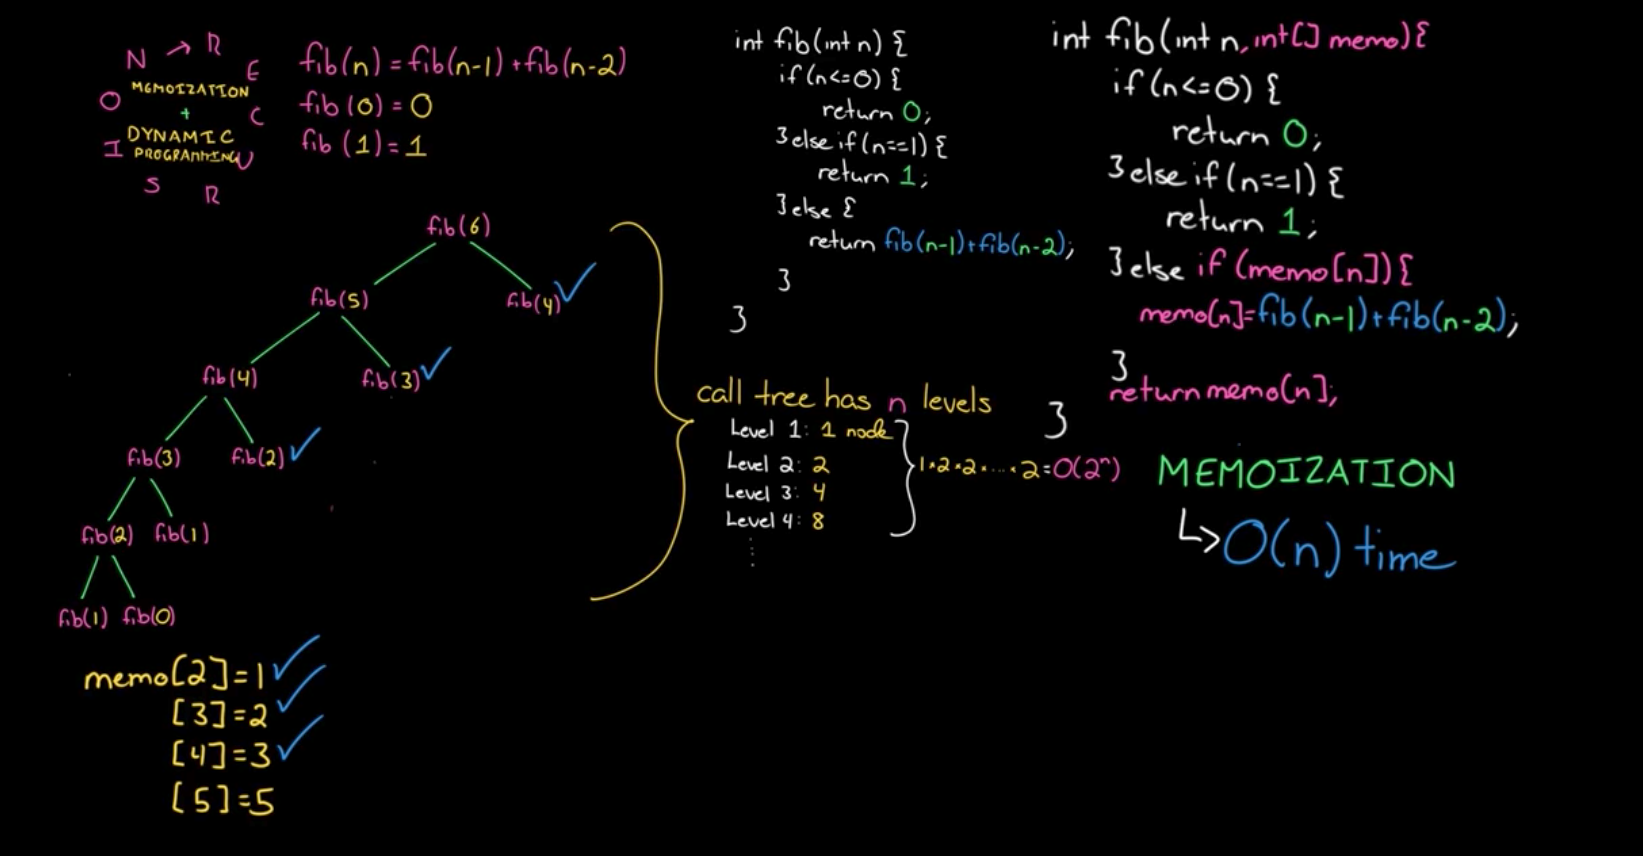 RECURSION
MEMOIZATION
+
DYNAMIC
PROGRAMMING
fib(n) = fib(n-1) + fib(n-2)
fib(0) = 0
fib(1) = 1
fib(6)
fib(5)
fib(4)
fib(4)
fib(3)
fib(3)
fib(2)
fib(2)
fib(1)
fib(1)
fib(0)
memo[2]=1
[3]=2
[4]=3
[5]=5
int fib(int n) {
if(n<=0) {
return 0;
}else if(n==1) {
return 1;
}else {
return fib(n-1)+fib(n-2);
}
}
call tree has n levels
Level 1: 1 node
Level 2: 2
Level 3: 4
Level 4: 8
1*2*2*....*2=O(2ⁿ)
int fib(int n, int[] memo){
if(n<=0) {
return 0;
}else if(n==1) {
return 1;
}else if (memo[n]){
memo[n]=fib(n-1)+fib(n-2);
}
return memo[n];
}
MEMOIZATION
↳O(n) time